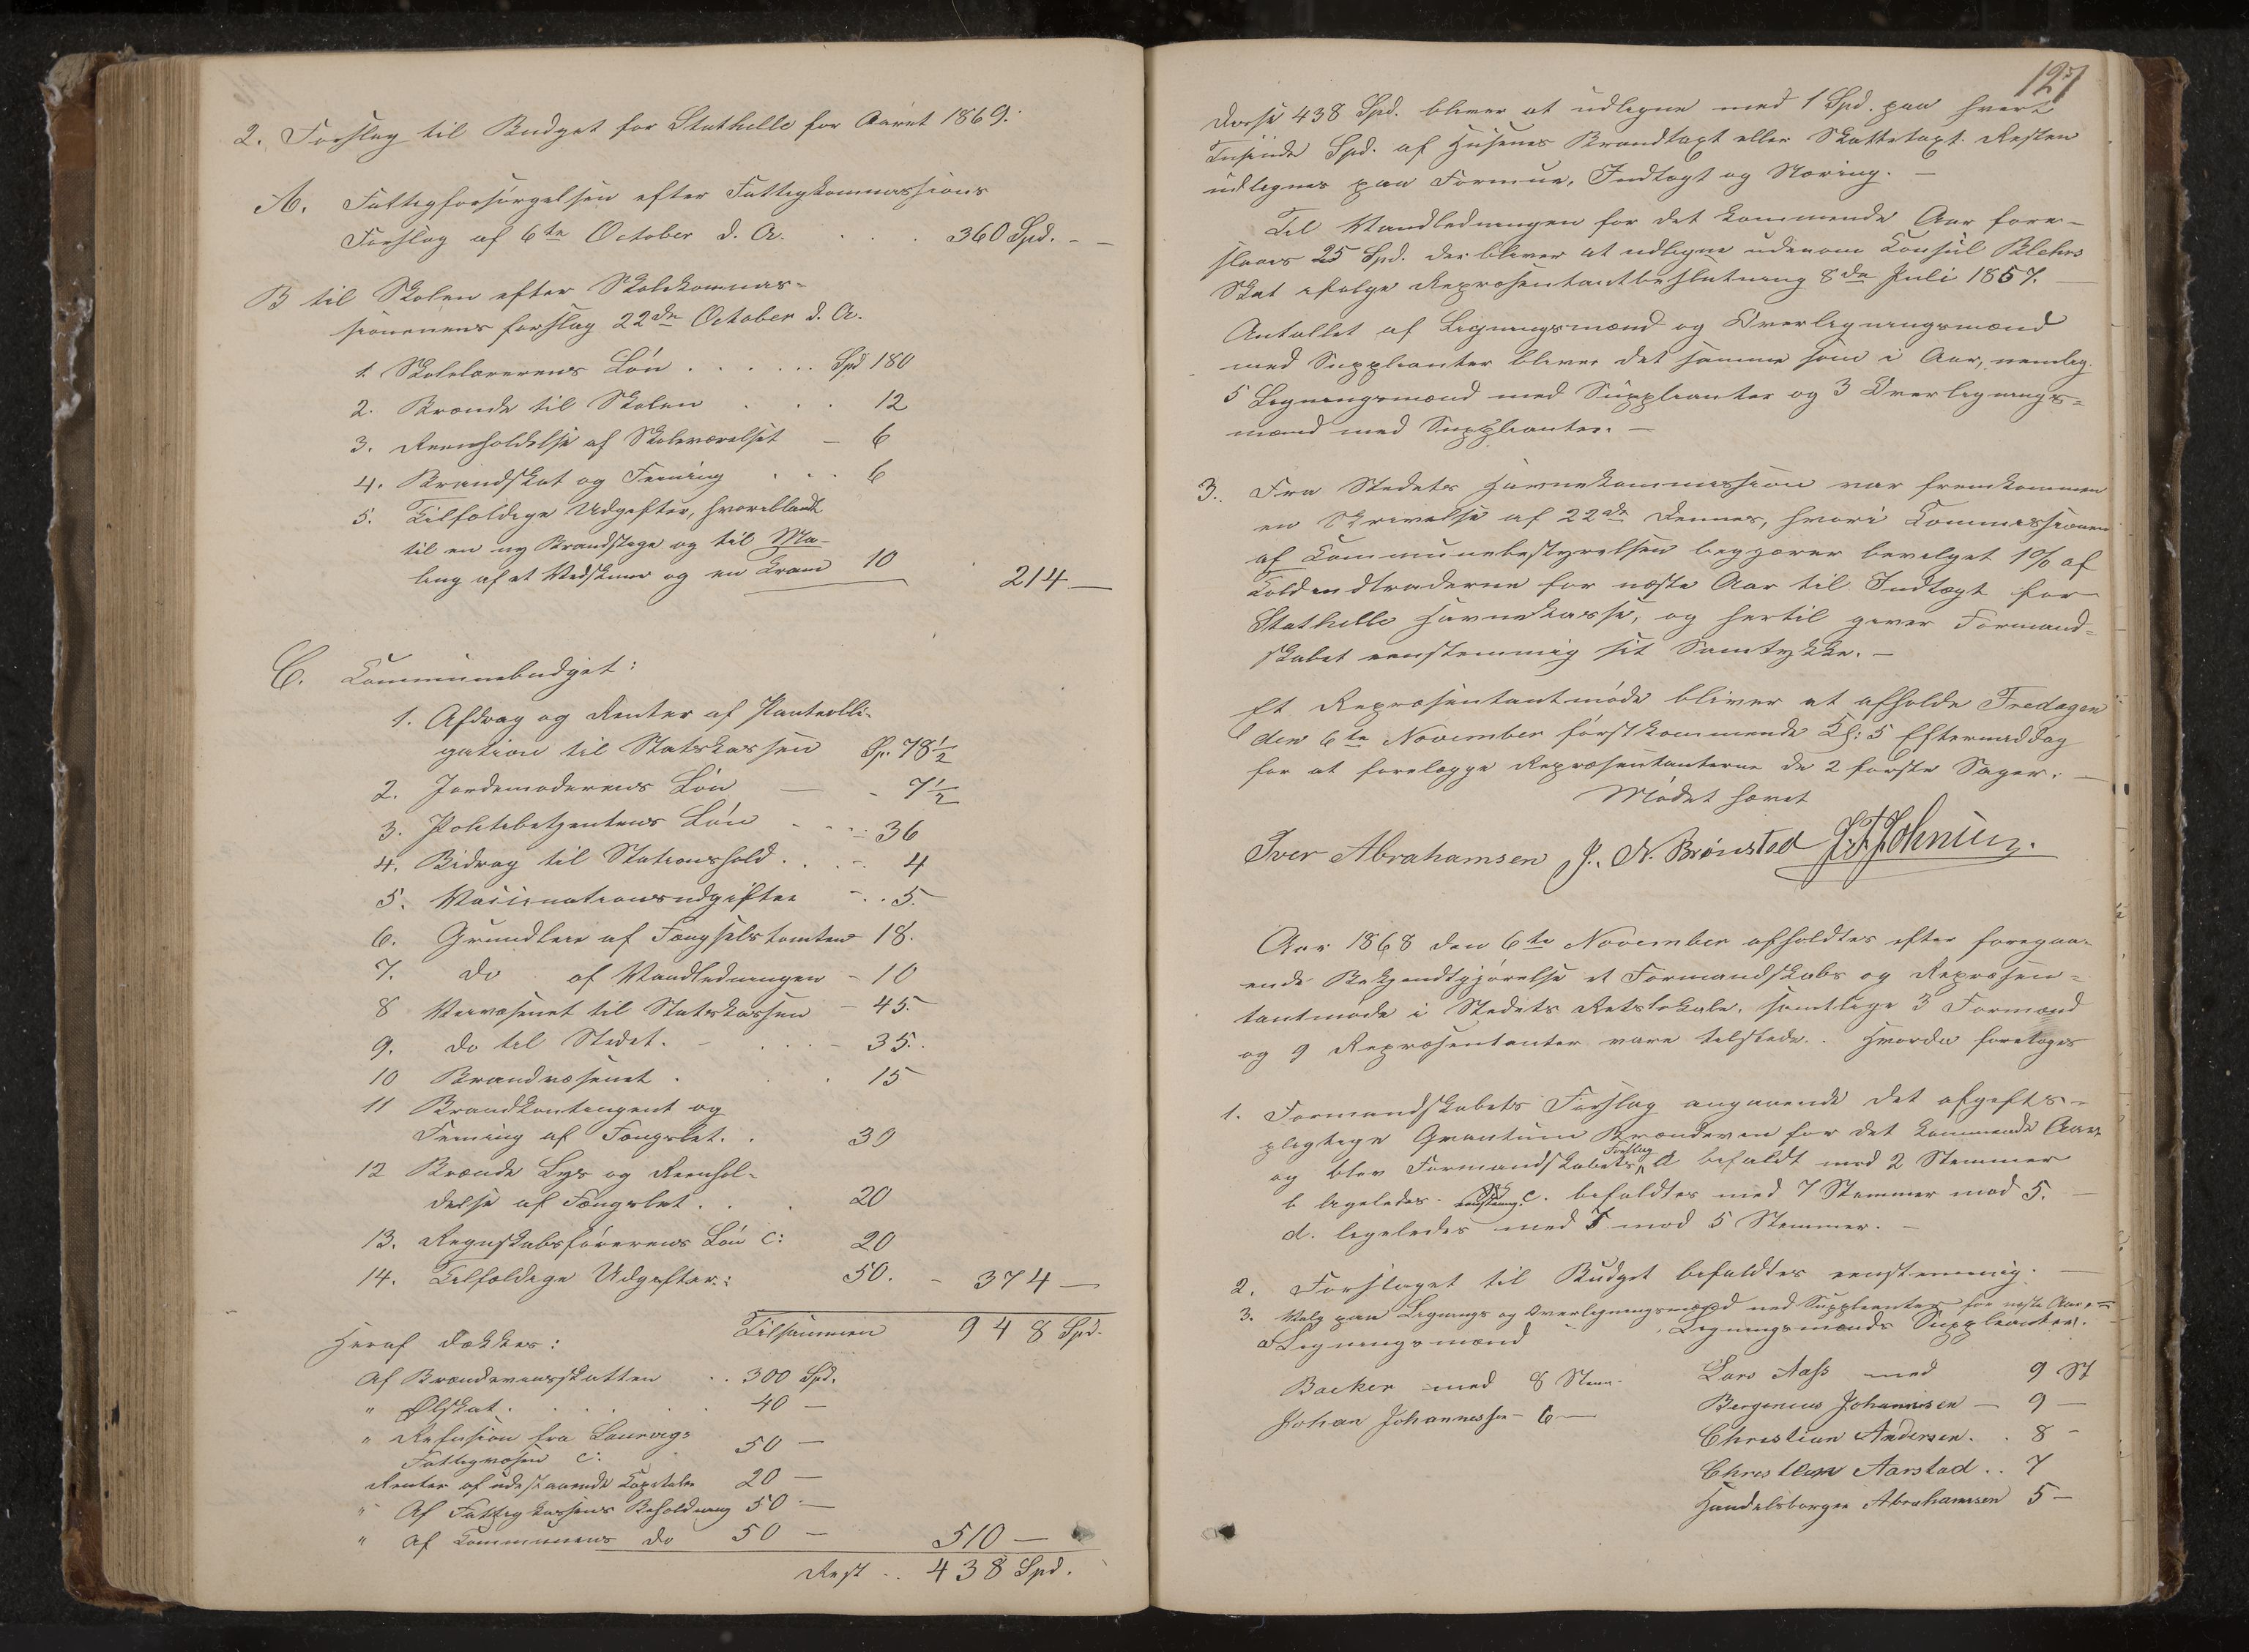 2. Forslag til Budget for Stathelle for Aaret 1869.
A. Fattigforsørgelsen efter Fattigkommissions
Forslag af 6te October d. A. . . . 360 Spd. - -
B til Skolen efter Skolekommis-
sionenens forslag 22de October d. A.
1. Skolelærerens Løn . . . . . . Spd 180
2. Brænde til Skolen . . . 12
3. Reenholdelse af Skoleværelset - 6
4. Brandskat og Feining . . . 6
5. Tilfældige Udgifter, hvoriblandt
til en ny Brandstige og til Ma-
ling af et Vedskuur og en 10
214 —
C. Communebudget:
1. Afdrag og Renter af Panteobli-
gation til Statskassen Sp. 78½
2. Jordemoderens Løn — - 7½
3. Politibetjentens Løn - - - 36
4. Bidrag til Stationshold . . - 4
5. Vaccinationsudgifter - . . 5.
6. Grundleie af Fængselstomten 18.
7. do af Vandledningen - 10
8 Veivæsenet til Statskassen - 45.
9. do til Stedet. - . . . - 35.
10 Brandvæsenet . . . 15
11 Brandkontingent og
Feining af Fængslet. . 30
12 Brænde Lys og Reenhol-
delse af Fængslet . . . 20
13. Regnskabsførerens Løn c: 20
14. Tilfældige Udgifter: 50. - 374 —
Tilsammen 948 Spd.
Heraf dækkes:
Af Brændeviinsskatten . . 300 Spd.
" Ølskat . . . . . . 40 —
" Refusion fra Laurvigs
Fattigvæsen c: 50 —
Renter af udestaaende Capitaler 20 —
" Af Fattigkassens Beholdning 50 —
" af Communens do 50 — 510 —
Rest . . 438 Spd.
127
Disse 438 Spd. bliver at udligne med 1 Spd. paa hvert
Tusinde Spd. af Husenes Brandtaxt eller Skattetaxt. Resten
udlignes paa Formue, Indtægt og Næring. —
Til Vandledningen for det kommende Aar fore-
slaaes 25 Spd. der bliver at udligne udenom Consul Blehrs
Skat ifølge Repræsentantbeslutning 8de Juli 1857. —
Antallet af Ligningsmænd og Overligningsmænd
med Supplianter bliver det samme som i Aar, nemlig
5 Ligningsmænd med Supplianter og 3 Overlignings-
mænd med Supplianter. —
3. Fra Stedets Havnekommission var fremkommen
en Skrivelse af 22de dennes, hvori Commissionen
af Communebestyrelsen begjærer bevilget 1% af
Toldindtraderne for næste Aar til Indtægt for
Stathelle Havnekasse, og hertil giver Formand-
skabet eenstemmig sit Samtykke. —
Et Repræsentantmøde bliver at afholde Fredagen
den 6te November førstkommende Kl: 5 Eftermiddag
for at forelægge Repræsentanterne de 2 første Sager. —
Mødet hævet
Iver Abrahamsen J. N. Brønsted
Aar 1868 den 6te November afholdtes efter foregaa-
ende Bekjendtgjørelse et Formandskabs og Repræsen-
tantmøde i Stedets Retslokale, samtlige 3 Formænd
og 9 Repræsentanter vare tilstede. Hvorda foretoges
1. Formandskabets Forslag angaaende det afgifts-
pligtige Qvantum Brændeviin for det kommende Aar
og blev Formandskabets Forslag a bifaldt med 2 Stemmer
b ligeledes. c. bifaldtes med 7 Stemmer mod 5. —
d. ligeledes med 7 mod 5 Stemmer. —
2. Forslaget til Budget bifaldtes eenstemmig. —
3. Valg paa Lignings og Overligningsmænd med Supplianter for næste Aar: —
a Ligningsmænd Ligningsmænds Supplianter.
Backer med 8 Stem. Lars Aass med 9 St
Johan Johannessen - 6 — Bergenius Johannisen — 9 —
Christian Andersen . . 8 -
Christian Aarstad . . 7
Handelsborger Abrahamsen 5 —